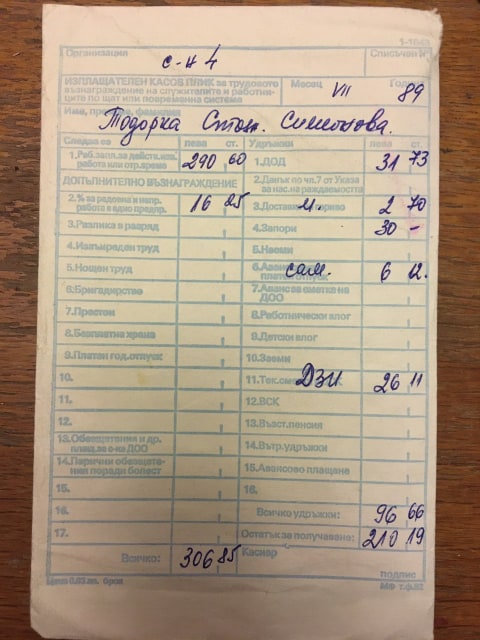 Организация
с-н 4
Списъчен №
ИЗПЛАЩАТЕЛЕН КАСОВ ПЛИК за трудовото
възнаграждение на служителите и работни-
ците по щат или повременна система
Месец VII Година 89
Име, презиме, фамилия
Тодорка Стоян. Симеонова.
Следва се лева ст. Удръжки лева ст.
1. Раб. запл. за действ. изр. работа или отр. време 290 60 1. ДОД 31 73
ДОПЪЛНИТЕЛНО ВЪЗНАГРАЖДЕНИЕ 2. Данък по чл. 7 от Указа за нас. на раждаемостта
2. % за редовна и напр. работа в едно предпр. 16 25 3. м. 2 70
3. Разлика в разряд 4. Запори 30 -
4. Извънреден труд 5. Наеми
5. Нощен труд 6. сам. 6 12.
6. Бригадирство 7. Аванс за сметка на ДОО
7. Престои 8. Работнически влог
8. Безплатна храна 9. Детски влог
9. Платен год. отпуск 10. Заеми
10. 11. ДЗИ 26 11
11. 12. ВСК
12. 13. Възст. пенсия
13. Обезщетения и др. плащ. за с-ка ДОО 14. Вътр. удръжки
14. Парични обезщете- ния поради болест 15. Авансово плащане
15. 16.
16. Всичко удръжки: 96 66
17. Остатък за получаване: 210 19
Всичко: 306 85 Касиер
подпис
Цена 0,03 лв. броя